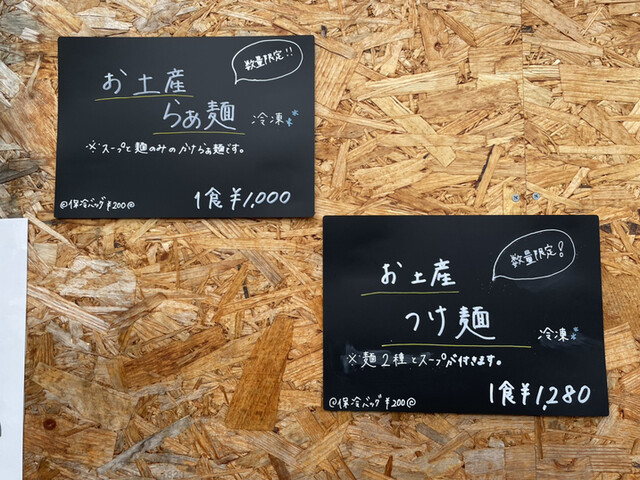 数量限定!!
お土産
らぁ麺
冷凍
※スープと麺のみのかけらぁ麺です。
1食¥1,000
@保冷バッグ¥200@
数量限定!
お土産
つけ麺
冷凍
※麺2種とスープが付きます。
1食¥1,280
@保冷バッグ¥200@